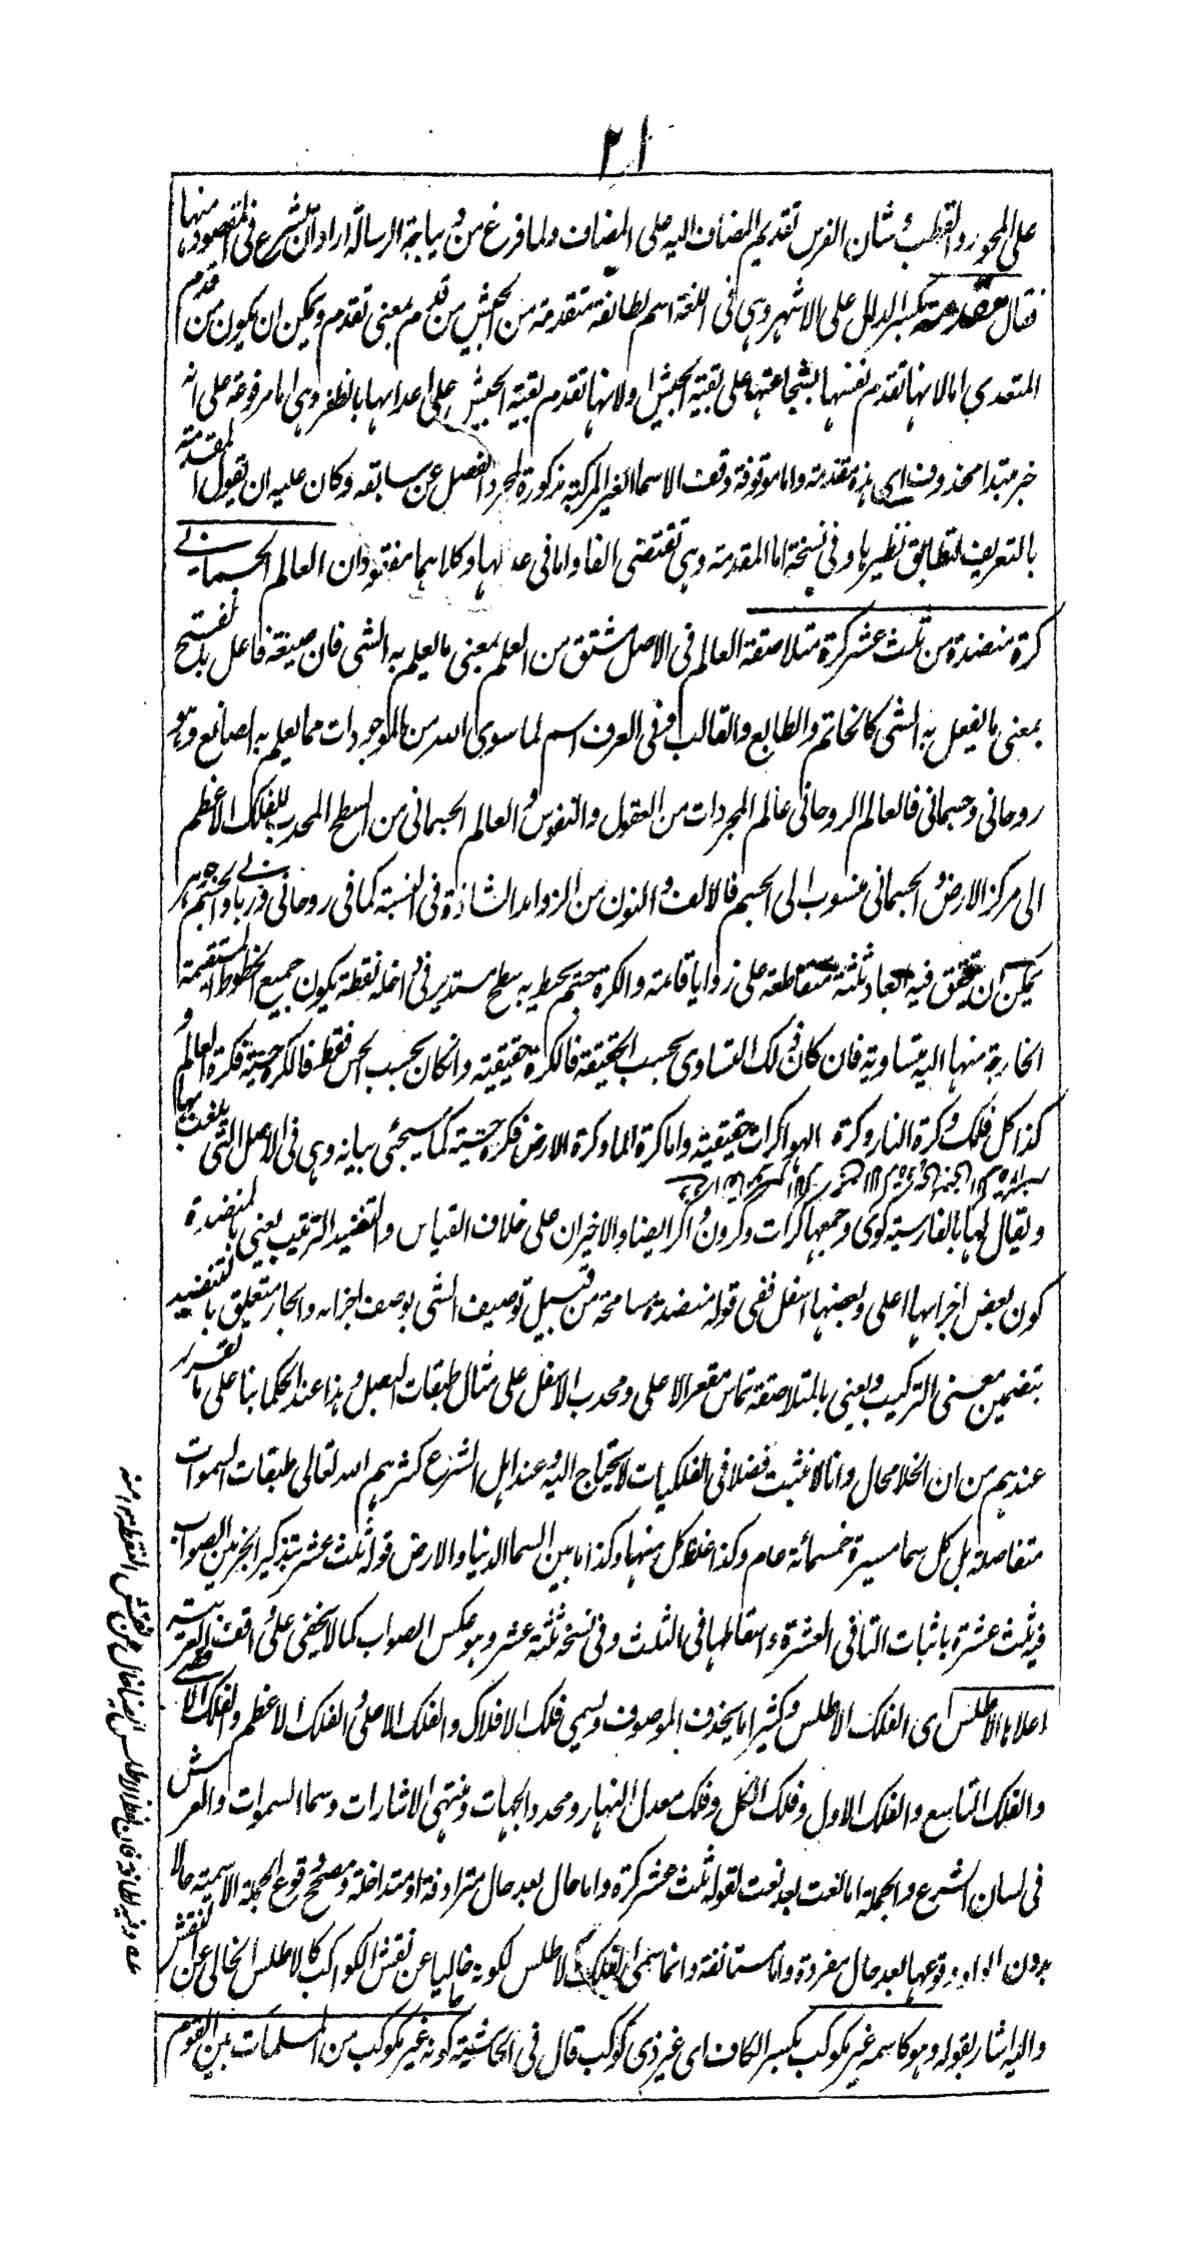 ٢١
على المحور والقطب و شان الفرس تقديم المضاف اليه على المضاف ولما فرغ من ديباجة الرسالة اراد ان يشرع فى المقصود منها
فقال مقدمة بكسر الدال على الاشهر وهى فى اللغة اسم لطائفة متقدمة من الجيش من قدم بمعنى تقدم ويمكن ان يكون من قدم
المتعدي اما لانها تقدم نفسها بشجاعتها على بقية الجيش او لانها تقدم بقية الجيش على اعدائها بالظفر وهى اما مرفوعة على انه
خبر مبتدا محذوف اى هذه مقدمة واما موقوفة وقف الاسما الغير المركبة مذكورة لمجرد الفصل عن سابقه وكان عليه ان يقول المقدمة
بالتعريف لتطابق نظيرها وفى نسخة اما المقدمة وهى تقتضى الفا واما فى عدلها وكلاهما مفقودان العالم الجسمانے
كرة منضدة من ثلث عشر كرة متلاصقة العالم فى الاصل مشتق من العلم بمعنى ما يعلم به الشى فان صيغة فاعل بالفتح
بمعنى ما يفعل به الشى كالخاتم والطابع والقالب و فى العرف اسم لما سوى الله من الموجودات مما يعلم به الصانع وهو
روحانى وجسمانى فالعالم الروحانى عالم المجردات من العقول والنفوس و العالم الجسمانى من السطح المحدب للفلك الاعظم
الى مركز الارض و الجسمانى منسوب الى الجسم فالالف و النون من الزوائد الشاذة فى النسبة كما فى روحانى و ربانے والجسم جوهر
يمكن ان يتحقق فيه ابعاد ثلثة متقاطعة على زوايا قائمة والكرة جسم يحيط به سطح مستدير فى داخله نقطة يكون جميع الخطوط المستقيمة
الخارجة منها اليه متساوية فان كان ذلك التساوى بحسب الحقيقة فالكرة حقيقية وانكان بحسب الحس فقط فالكرة حسية فكرة العالم و
كذا كل فلك وكرة النار وكرة الهوا كرات حقيقية واما كرة الما وكرة الارض فكرة حسية كما سيجئى بيانه وهى فى الاصل التى يلعب بها
ويقال لها بالفارسية كوى وجمعها كرات وكرون و اكر ايضا والاخيران على خلاف القياس والتنضيد الترتيب يعنى بالمنضدة
كون بعض اجزايها اعلى وبعضها اسفل ففى قوله منضدة مسامحة من قبيل توصيف الشى بوصف اجزائه والجار متعلق بالتنضيد
بتضمين معنى التركيب ويعنى بالمتلاصقة تماس مقعر الاعلى ومحدب الاسفل على مثال طبقات البصل و هذا عند الحكما بنا على ما تقرر
عندهم من ان الخلا محال وانا لا نثبت فضلا فى الفلكيات لا يحتاج اليه و عند اهل الشرع كثرهم الله تعالى طبقات السموات
متفاصلة بل كل سما مسيرة خمسمائة عام وكذا غلظ كل منها وكذا ما بين السما الدنيا والارض قوله ثلث عشر بتذكير الجزئين الصواب
فيه ثلث عشرة باثبات التا فى العشرة واسقاطها فى الثلث وفى نسخه ثلثة عشر وهو عكس الصواب كما لا يخفى على واقف العربية
اعلاها الاطلس اى الفلك الاطلس و كثيرا ما يحذف الموصوف ويسمى فلك الافلاك والفلك الاعلى و الفلك الاعظم والفلك الاقصى
والفلك التاسع والفلك الاول وفلك الكل وفلك معدل النهار ومحدد الجهات ومنتهى الاشارات وسما السموات والعرش
فى لسان الشرع والجملة اما نعت بعد نعت لقوله ثلث عشر كرة واما حال بعد حال مترادفة او متداخلة ومصحح وقوع الجملة الاسمية حالا
بدون الواو وقوعها بعد حال مفردة واما مستانفة وانما سمى الفلك الاطلس لكونه خاليا عن نقش الكواكب كالاطلس الخالى عن النقش
واليه اشار بقوله وهو كاسمه غير مكوكب بكسر الكاف اى غير ذى كوكب قال فى الحاشية كونه غير مكوكب من المسلمات بين القوم